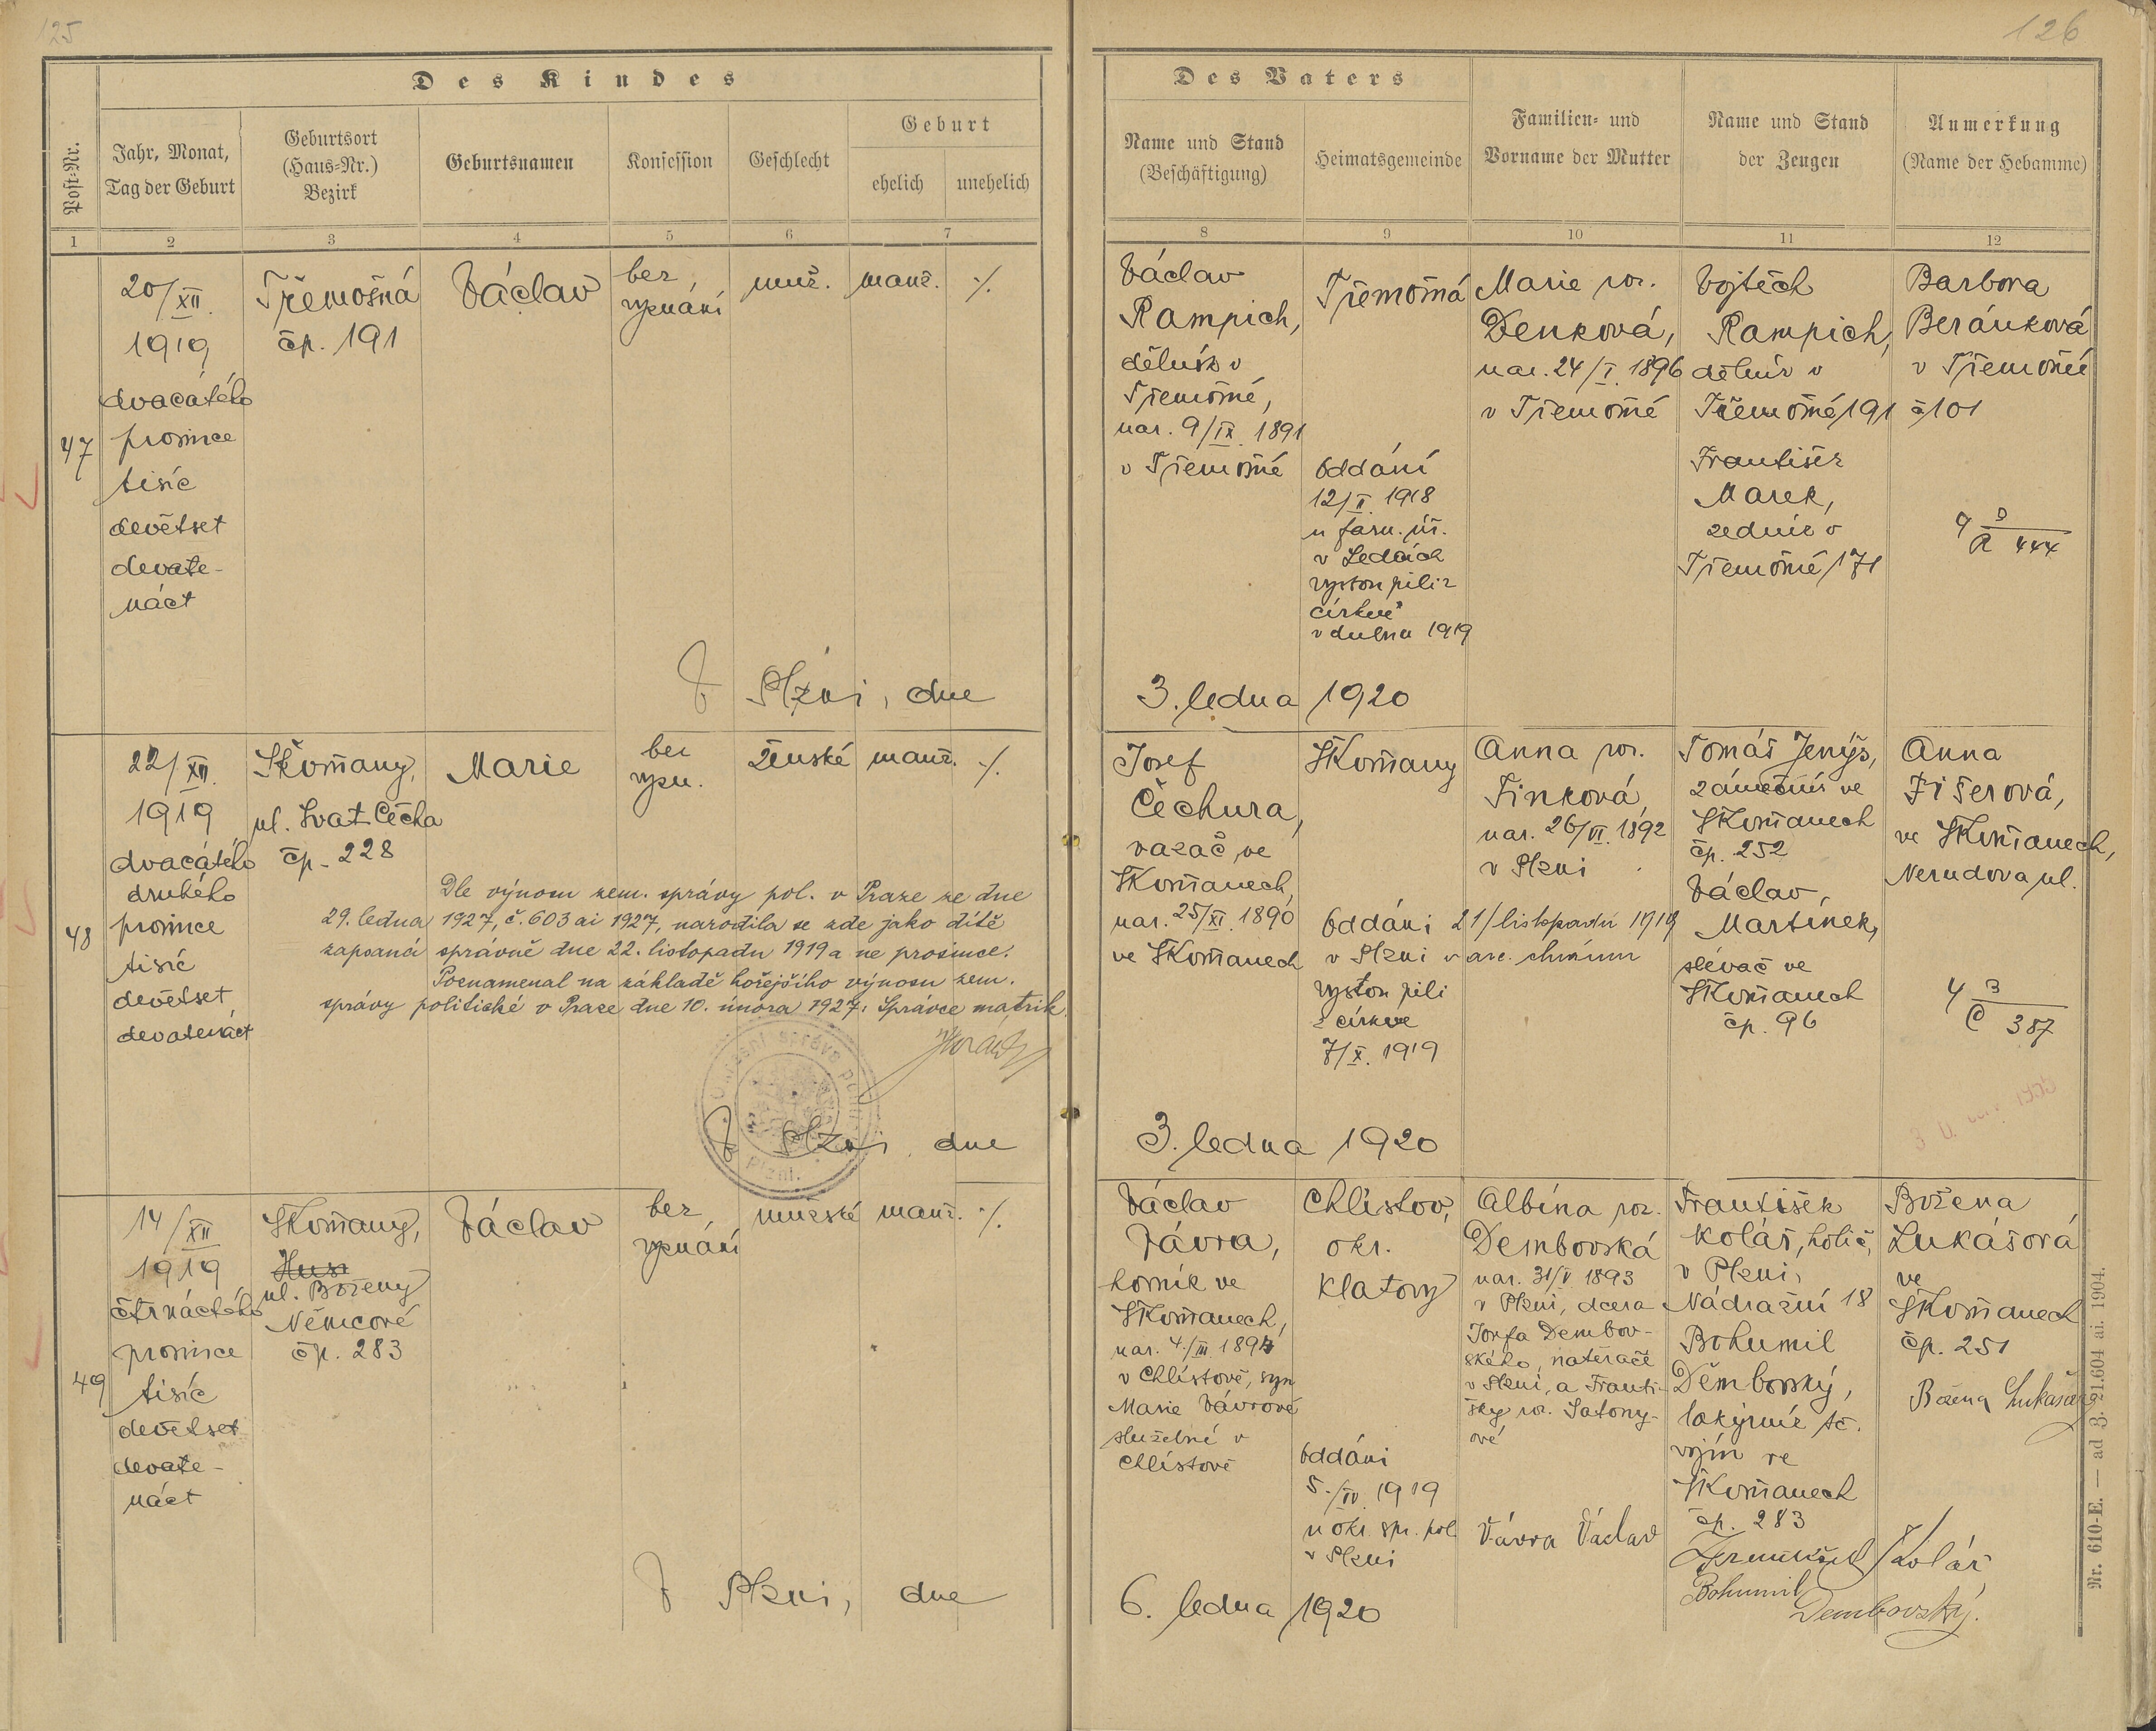 125
126
Des Kindes
Des Vaters
Post-Nr.
Jahr, Monat,
Tag der Geburt
Geburtsort
(Haus-Nr.)
Bezirk
Geburtsnamen
Konfession
Geschlecht
Geburt
ehelich
unehelich
Name und Stand
(Beschäftigung)
Heimatsgemeinde
Familien- und
Vorname der Mutter
Name und Stand
der Zeugen
Anmerkung
(Name der Hebamme)
1 2 3 4 5 6 7 8 9 10 11 12
47
20/XII.
1919
dvacátého
prosince
tisíc
devětset
devate-
náct
Třemošná
čp. 191
Václav
bez
vyznání
muž.
manž.
·/.
Václav
Rampich,
dělník v
Třemošné,
nar. 9/IX. 1891
v Třemošné
Třemošná
Oddáni
12/II. 1918
u farn. úř.
v Ledcích
vystoupili z
církve
v dubnu 1919
Marie roz.
Denková,
nar. 24/I. 1896
v Třemošné
Vojtěch
Rampich,
dělník v
Třemošné 191
František
Marek,
zedník v
Třemošné 171
Barbora
Beránková
v Třemošné
č 101
444
V Plzni, dne
3. ledna 1920
48
22/XII.
1919
dvacátého
druhého
prosince
tisíc
devětset
devatenáct
Škvrňany,
ul. Svat. Čecha
čp. 228
Marie
bez
vyzn.
ženské
manž.
·/.
Dle výnosu zem. správy pol. v Praze ze dne
29. ledna 1927, č. 603 ai 1927, narodila se zde jako dítě
zapsaná správně dne 22. listopadu 1919 a ne prosince.
Poznamenal na základě hořejšího výnosu zem.
správy politické v Praze dne 10. února 1927: Správce matrik.
Josef
Čechura,
vazač ve
Škvrňanech,
nar. 25/XI. 1890
ve Škvrňanech
Škvrňany
Oddáni 21/listopadu 1919
v Plzni v
vystoupili
z církve
7/X. 1919
Anna roz.
Finková,
nar. 26/VI. 1892
v Plzni
Tomáš Jenýš,
zámečník ve
Škvrňanech
čp. 252
Václav
Martinek,
slévač ve
Škvrňanech
čp. 96
Anna
Fišerová,
ve Škvrňanech,
Nerudova ul.
4 3
Č 387
V Plzni, dne
3. ledna 1920
49
14/XII
1919
čtrnáctého
prosince
tisíc
devětset
devate-
náct
Škvrňany,
Hus
ul. Boženy
Němcové
čp. 283
Václav
bez
vyznání
mužské
manž.
·/.
Václav
Vávra,
horník ve
Škvrňanech,
nar. 4./III 1894
v Chlístově, syn
Marie Vávrové
služebné v
Chlístově
Chlistov,
okr.
Klatovy
Oddáni
5./IV. 1919
u okr. spr. pol.
v Plzni
Albína roz.
Dembovská
nar. 31/V 1893
v Plzni, dcera
Josefa Dembov-
ského, natěrače
v Plzni, a Franti-
šky roz. Satony-
ové
Vávra Václav
František
Kolář, holič,
v Plzni,
Nádražní 18
Bohumil
Dembovský,
lakýrník tč.
vojín ve
Škvrňanech
čp. 283
František Kolář
Bohumil
Dembovský.
Božena
Lukášová
ve
Škvrňanech
čp. 251
Božena Lukášová
V Plzni, dne
6. ledna 1920
Nr. 610-E. — ad Z. 21.604 ai. 1904.